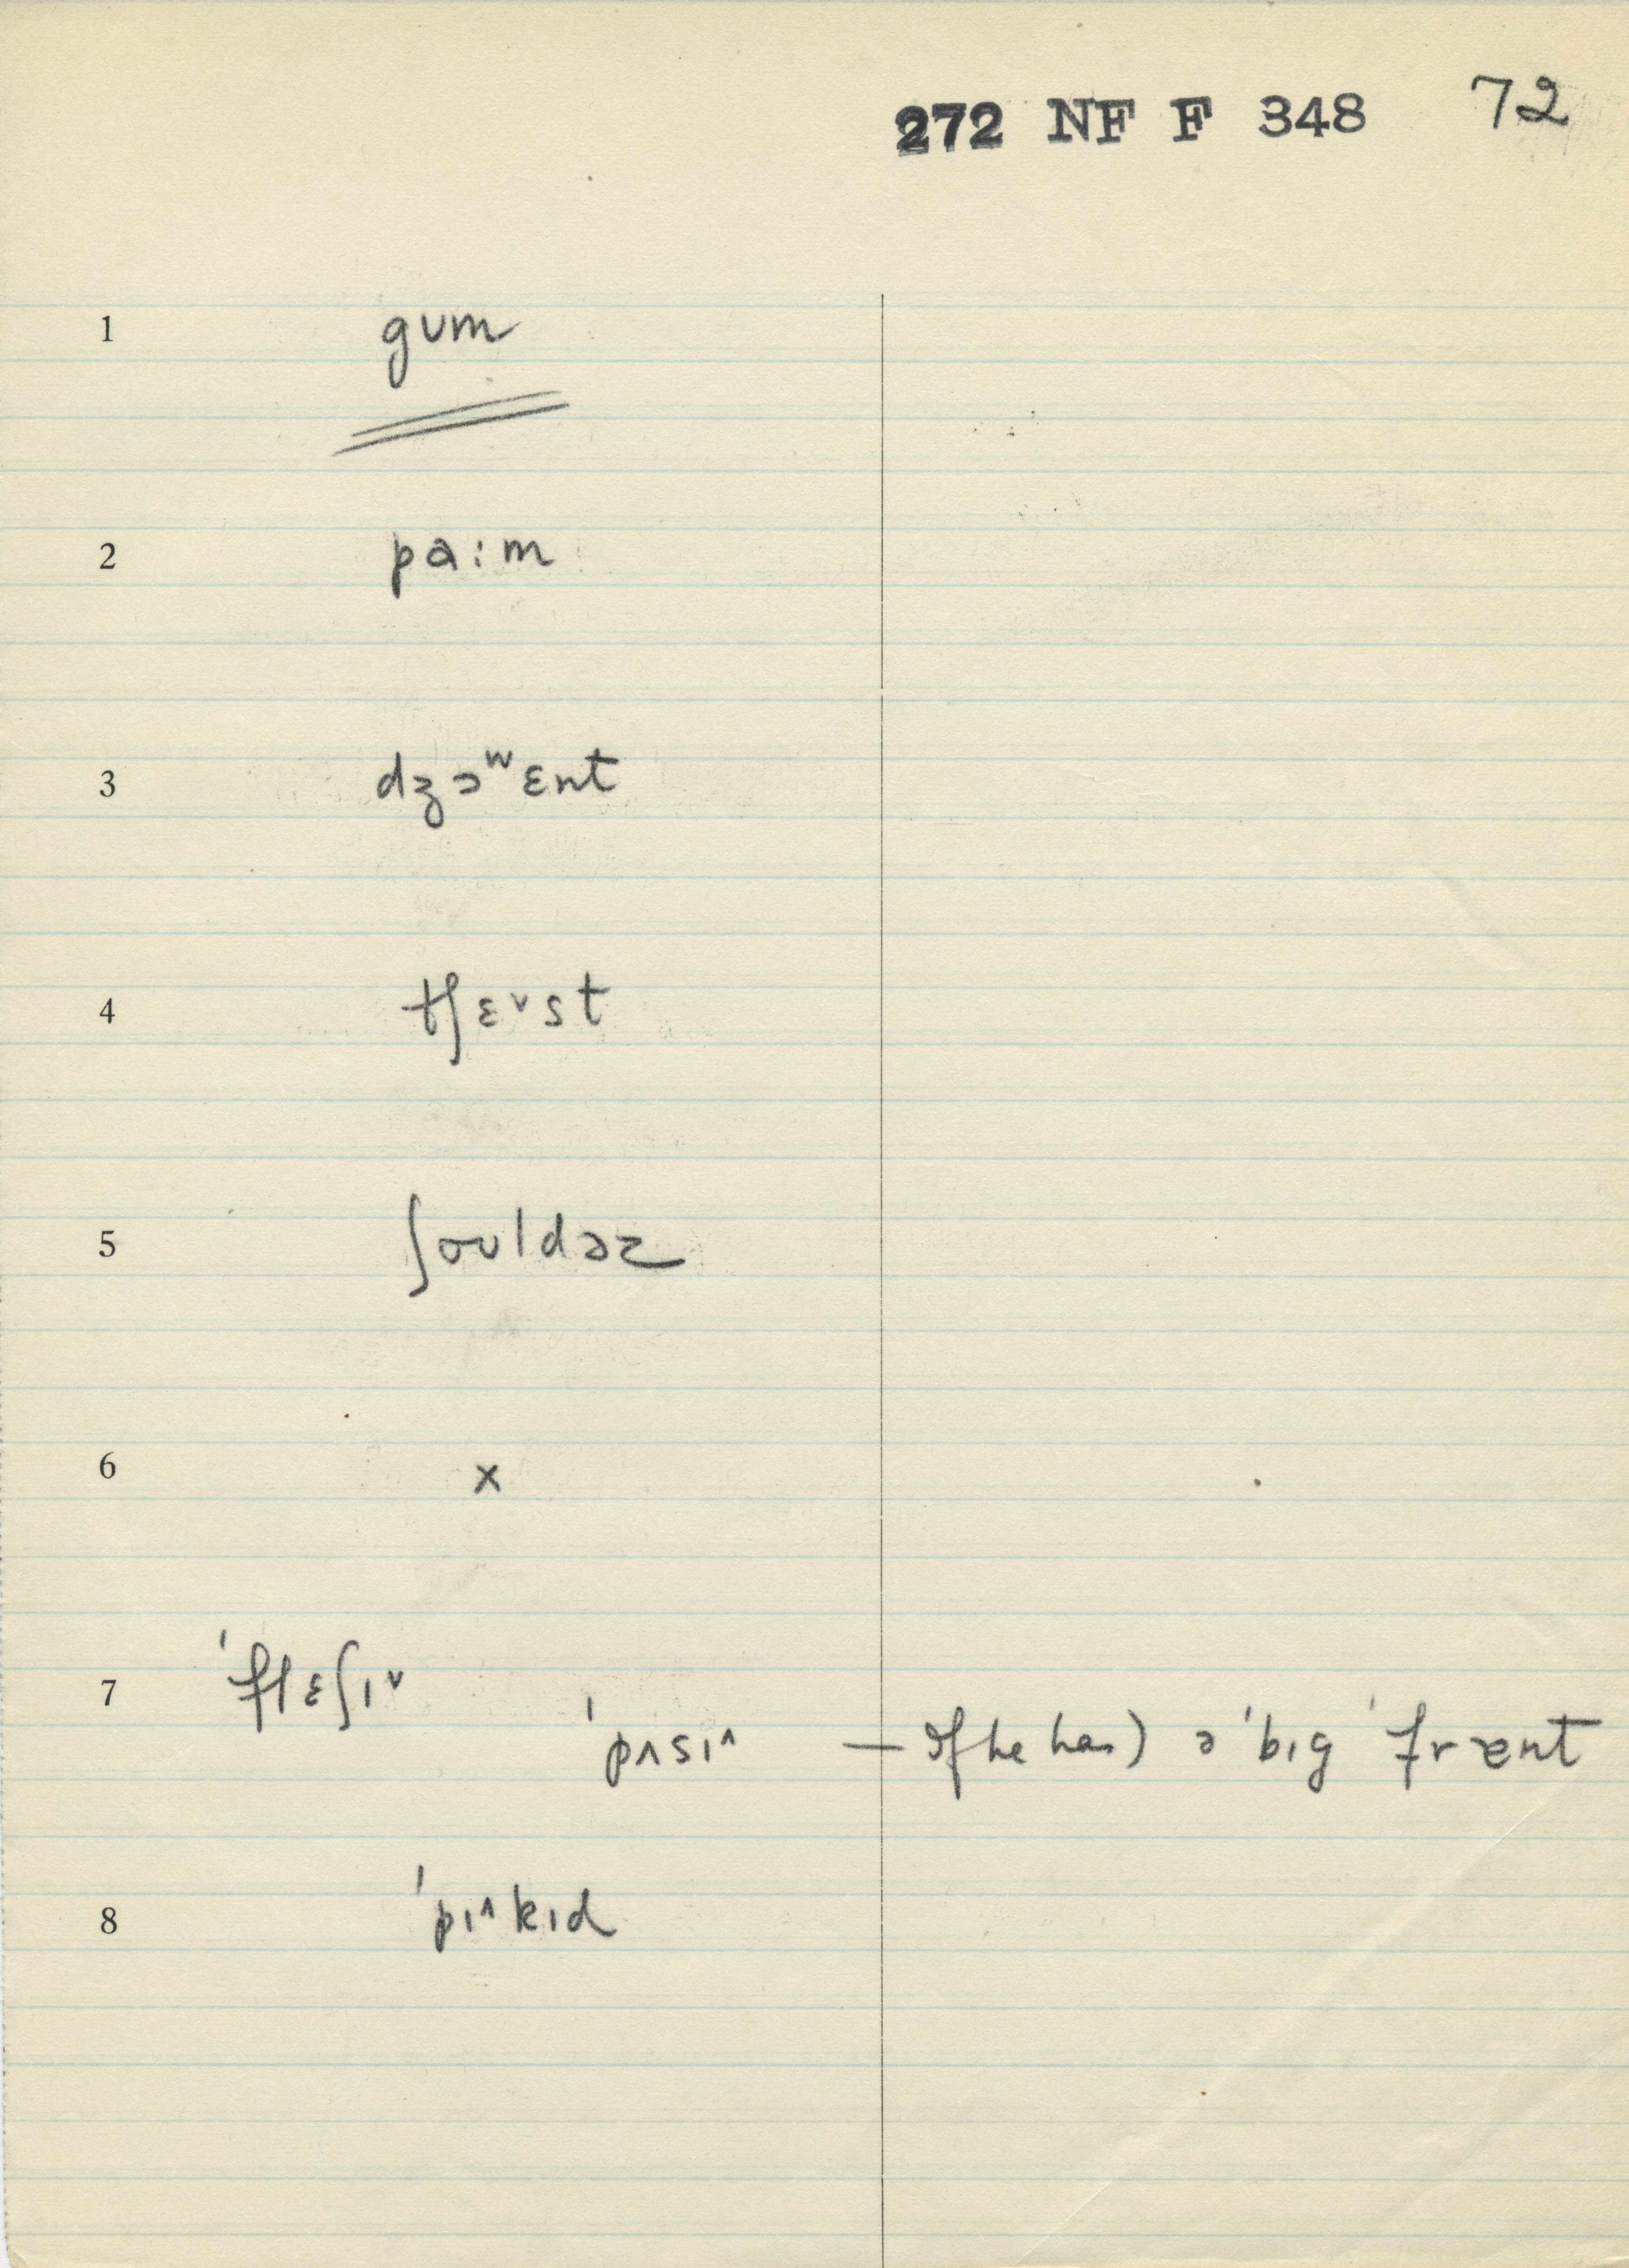 272 NF F 348 72
1 gʊm
2 pa:m
3 dʒɔʷɛnt
4 tʃɛ˅st
5 ʃoʊldəz
6 x
7 'flɛʃɪ˅
'pʌsɪ^ — if he has) ə 'bɪg 'frɐnt
8 'pɪ^kɪd